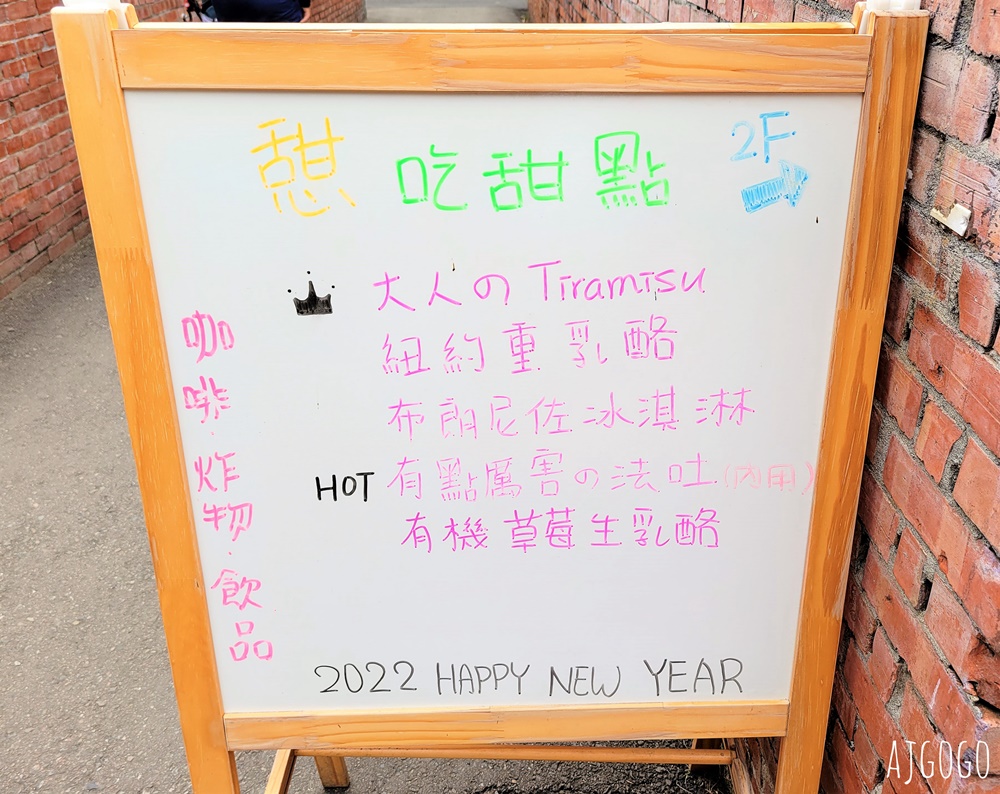 憇 吃甜點 2F
大人のTiramisu
紐約重乳酪
布朗尼佐冰淇淋
HOT 有點厲害の法吐(內用)
有機草莓生乳酪
咖啡・炸物・飲品
2022 HAPPY NEW YEAR
AJGOGO